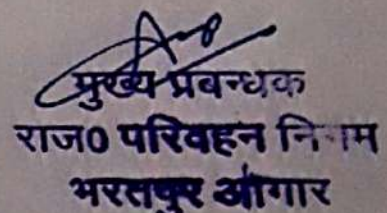 मुख्य प्रबन्धक
राज0 परिवहन निगम
भरतपुर आगार